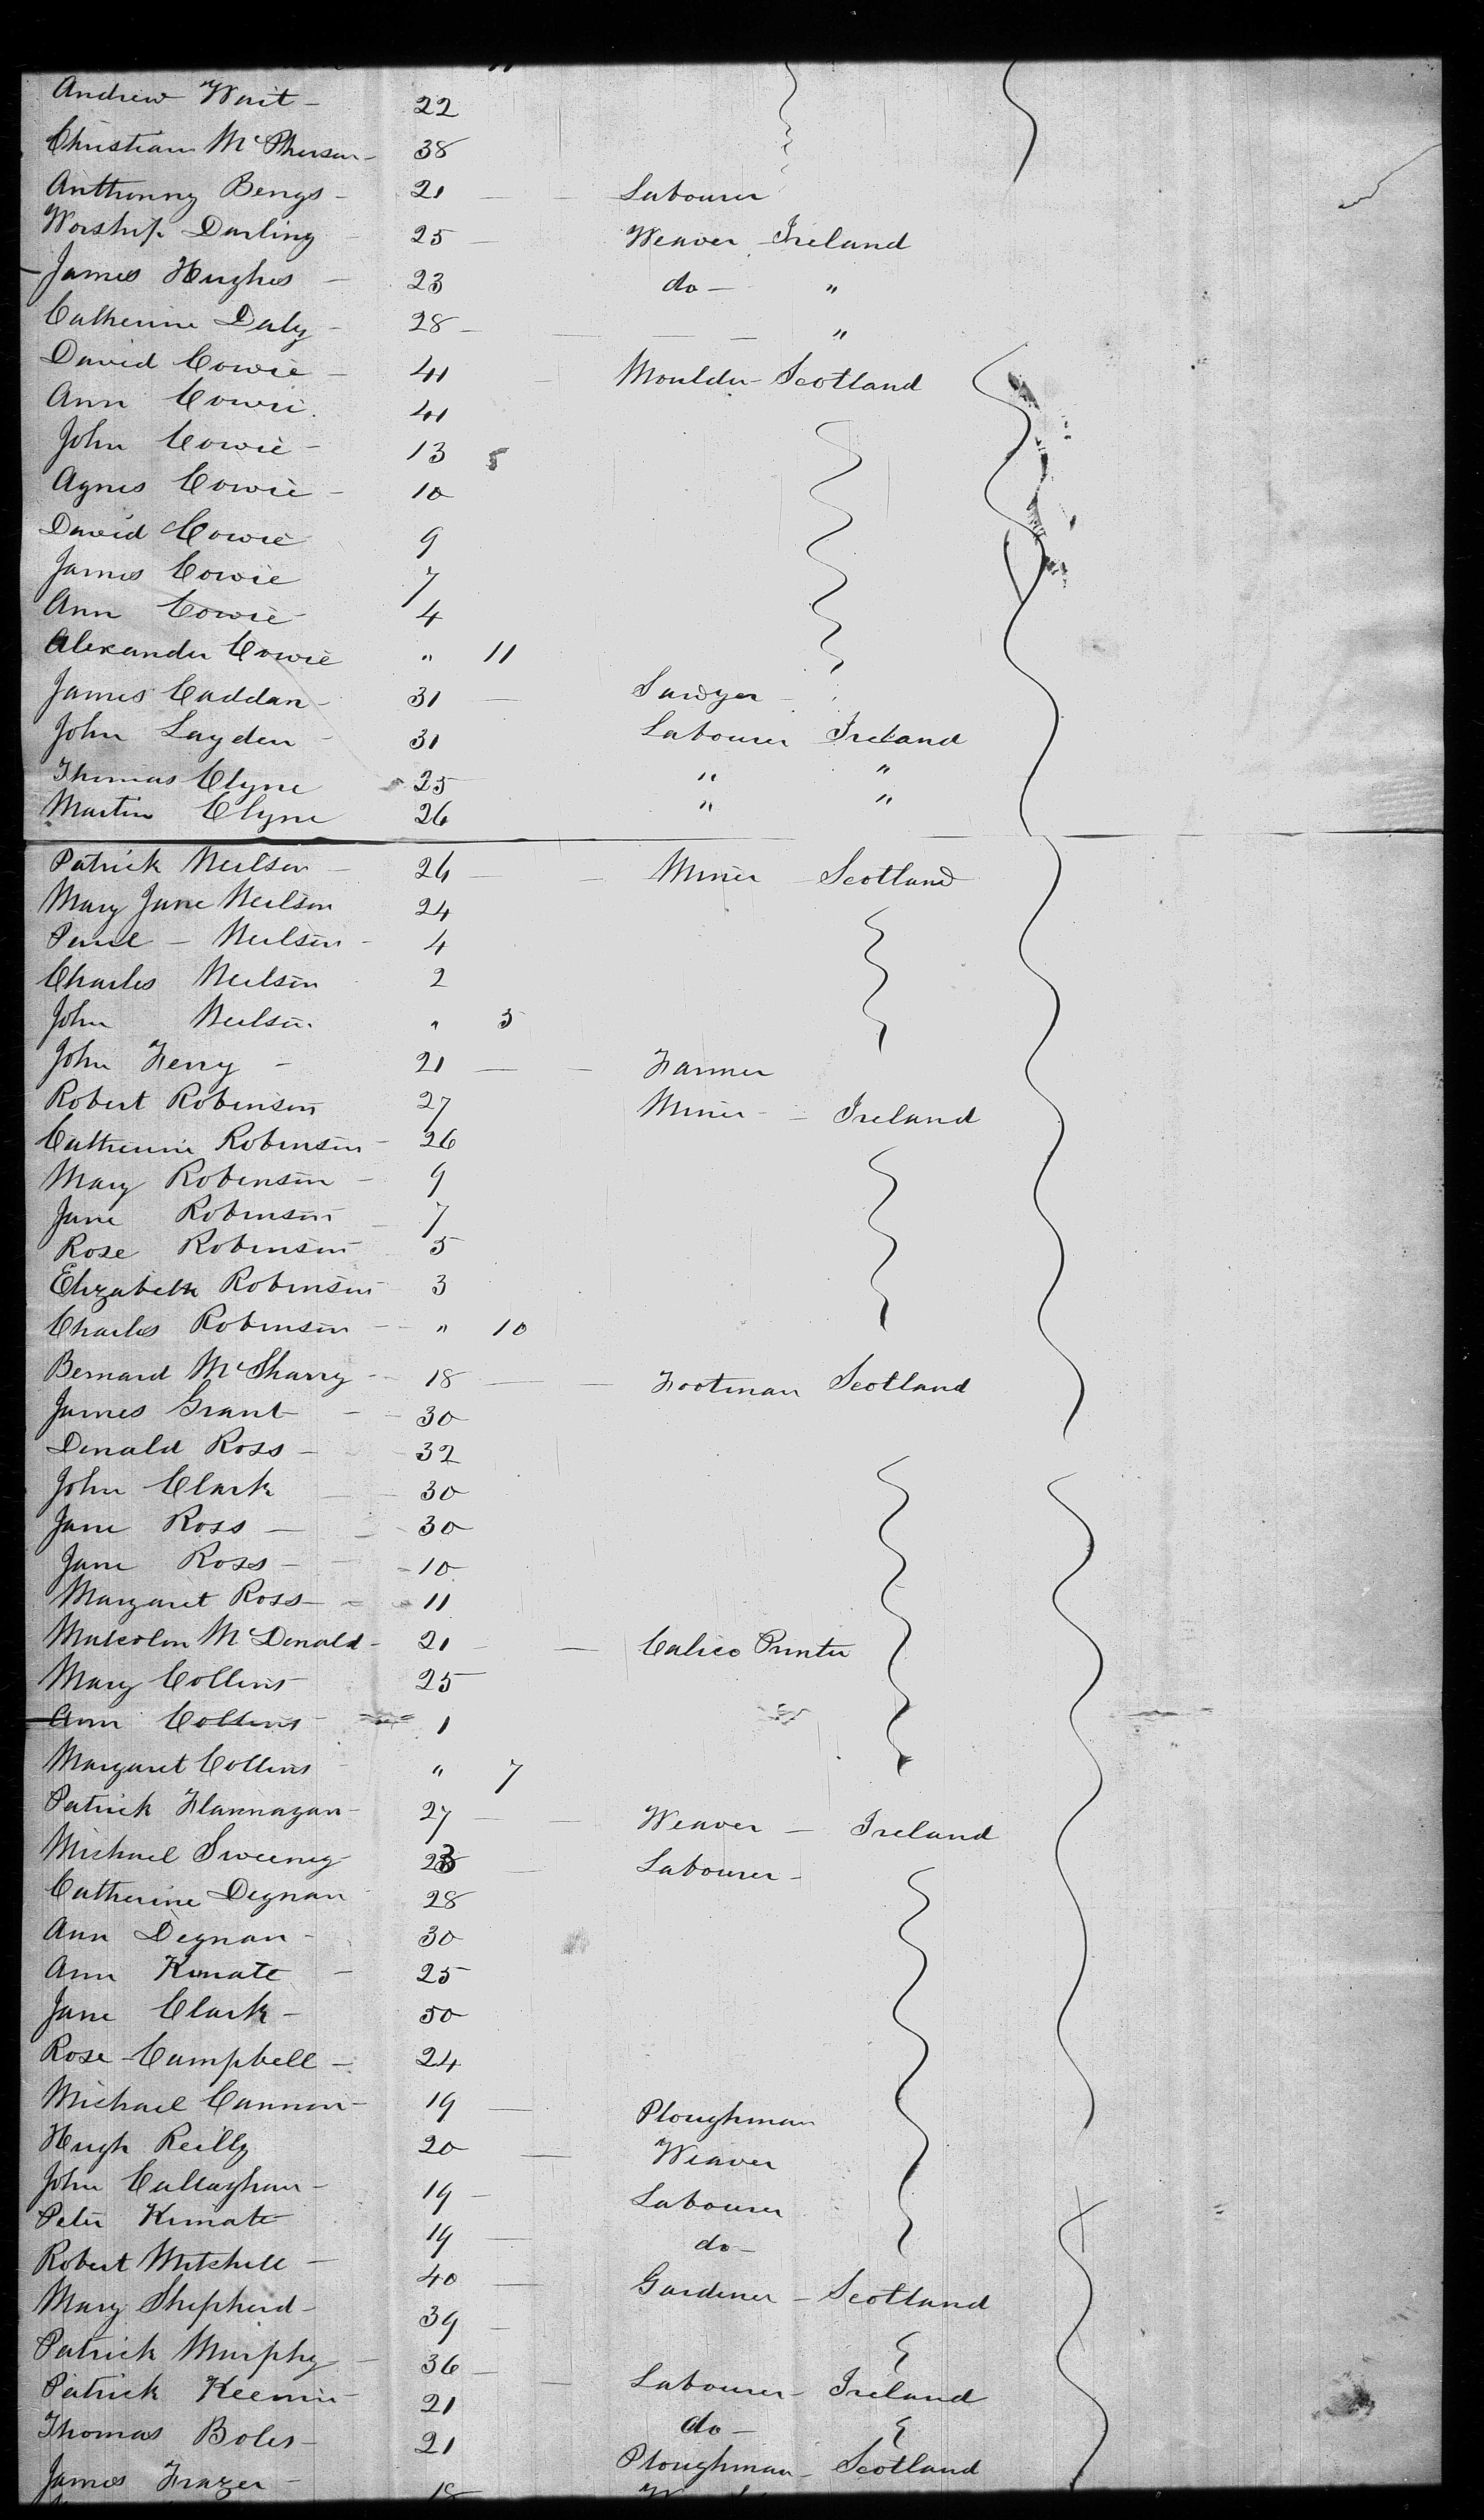 Andrew Wait - 22
Christian McPherson - 38
Anthonny Bengs - 21 - - Labourer
Worship Darling 25 - Weaver Ireland
James Hughes - 23 do - "
Catherine Daly - 28 - - - - "
David Cowie - 41 - Moulder - Scotland
Ann Cowie. 41
John Cowie - 13
Agnes Cowie - 10
David Cowie 9
James Cowie 7
Ann Cowie 4
Alexander Cowie " 11
James Caddan - 31 - Sawyer -
John Layden - 31 Labourer Ireland
Thomas Clyne 25 " "
Martin Clyne 26 " "
Patrick Neilson - 26 - - Miner Scotland
Mary Jane Neilson 24
Paul - Neilson - 4
Charles Neilson 2
John Neilson " 5
John Ferry - 21 - - Farmer
Robert Robinson 27 Miner - - Ireland
Catherine Robinson - 26
Mary Robinson - 9
Jane Robinson - 7
Rose Robinson 5
Elizabeth Robinson 3
Charles Robinson - " 10
Bernard McSharry - 18 - - Footman Scotland
James Grant - - 30
Donald Ross - - 32
John Clark - - 30
Jane Ross - - 30
Jane Ross - - 10
Margaret Ross - - 11
Malcolm McDonald - 21 - - Calico Printer
Mary Collins 25
Ann Collins 1
Margaret Collins " 7
Patrick Flannagan - 27 - - Weaver - Ireland
Michael Sweeney 23 - Labourer -
Catherine Degnan 28
Ann Degnan - 30
Ann Kinate - 25
Jane Clark - 50
Rose Campbell - 24
Michael Cannon - 19 - Ploughman
Hugh Reilly 20 - Weaver
John Callaghan - 19 - Labourer
Peter Kinate 19 - do -
Robert Mitchell - 40 - Gardener - Scotland
Mary Shepherd - 39 -
Patrick Murphy - 36 - - Labourer - Ireland
Patrick Keenin - 21 do -
Thomas Boles - 21 Ploughman - Scotland
James Frazer - 18